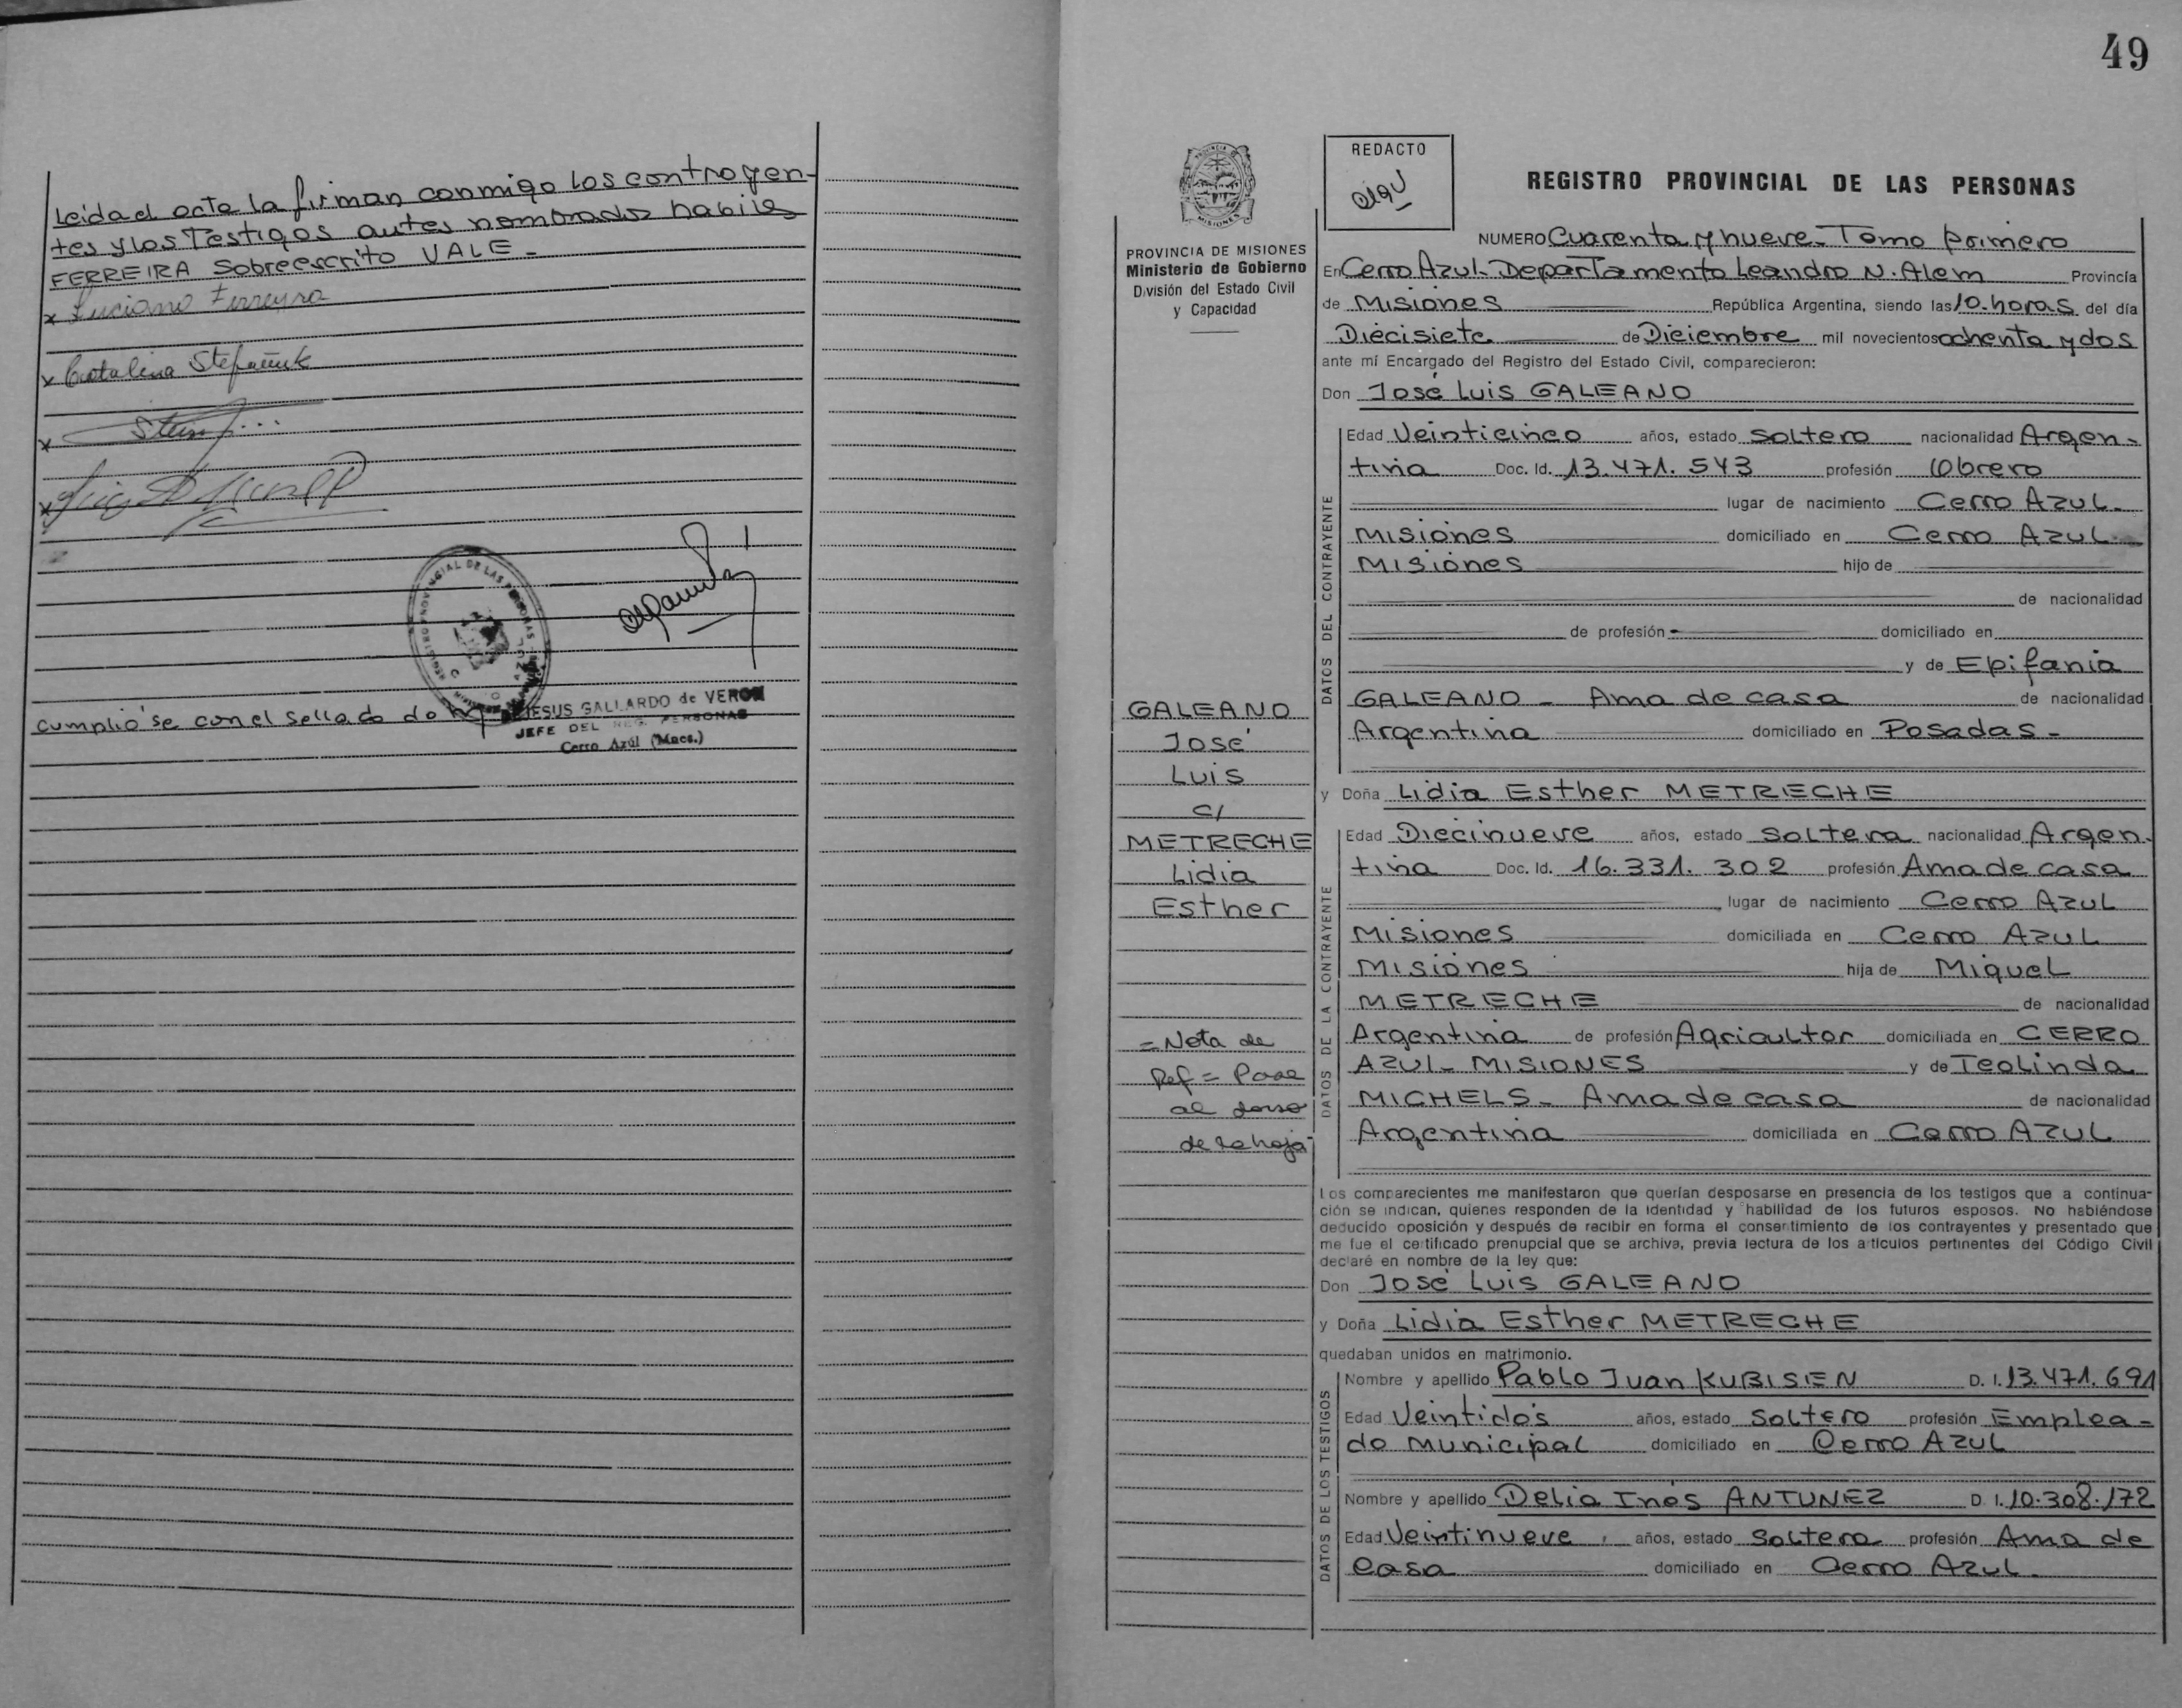 Leida el acta la firman conmigo los contrayen-
tes y los Testigos antes nombrados habiles
FERREIRA Sobreescrito VALE -
x Luciano Ferreyra
x Catalina Stefañuk
x
x
REGISTRO PROVINCIAL DE LAS PERSONAS
cumplió se con el sellado de ley
JESUS GALLARDO de VERON
JEFE DEL REG. PERSONAS
Cerro Azúl (Mnes.)
49
PROVINCIA DE MISIONES
Ministerio de Gobierno
División del Estado Civil
y Capacidad
GALEANO
José
Luis
c/
METRECHE
Lidia
Esther
= Nota de
Ref = Pase
al dorso
de la hoja-
REDACTO
REGISTRO PROVINCIAL DE LAS PERSONAS
NUMERO Cuarenta y nueve - Tomo primero
En Cerro Azul - Departamento Leandro N. Alem Provincia
de Misiones República Argentina, siendo las 10. horas del día
Diecisiete de Diciembre mil novecientos ochenta y dos
ante mí Encargado del Registro del Estado Civil, comparecieron:
Don José Luis GALEANO
DATOS DEL CONTRAYENTE
Edad Veinticinco años, estado Soltero nacionalidad Argen-
tina Doc. Id. 13.471.543 profesión Obrero
lugar de nacimiento Cerro Azul -
Misiones domiciliado en Cerro Azul -
Misiones hijo de
de nacionalidad
de profesión domiciliado en
y de Epifania
GALEANO - Ama de casa de nacionalidad
Argentina domiciliado en Posadas -
y Doña Lidia Esther METRECHE
DATOS DE LA CONTRAYENTE
Edad Diecinueve años, estado Soltera nacionalidad Argen-
tina Doc. Id. 16.331.302 profesión Ama de casa
lugar de nacimiento Cerro Azul
Misiones domiciliada en Cerro Azul
Misiones hija de Miguel
METRECHE de nacionalidad
Argentina de profesión Agricultor domiciliada en CERRO
AZUL - MISIONES y de Teolinda
MICHELS - Ama de casa de nacionalidad
Argentina domiciliada en Cerro Azul
Los comparecientes me manifestaron que querían desposarse en presencia de los testigos que a continua-
ción se indican, quienes responden de la identidad y habilidad de los futuros esposos. No habiéndose
deducido oposición y después de recibir en forma el consentimiento de los contrayentes y presentado que
me fue el certificado prenupcial que se archiva, previa lectura de los artículos pertinentes del Código Civil
declaré en nombre de la ley que:
Don José Luis GALEANO
y Doña Lidia Esther METRECHE
quedaban unidos en matrimonio.
DATOS DE LOS TESTIGOS
Nombre y apellido Pablo Juan KUBISIEN D. I. 13.471.691
Edad Veintidós años, estado Soltero profesión Emplea-
do Municipal domiciliado en Cerro Azul
Nombre y apellido Delia Inés ANTUNEZ D. I. 10.308.172
Edad Veintinueve años, estado Soltera profesión Ama de
casa domiciliado en Cerro Azul -